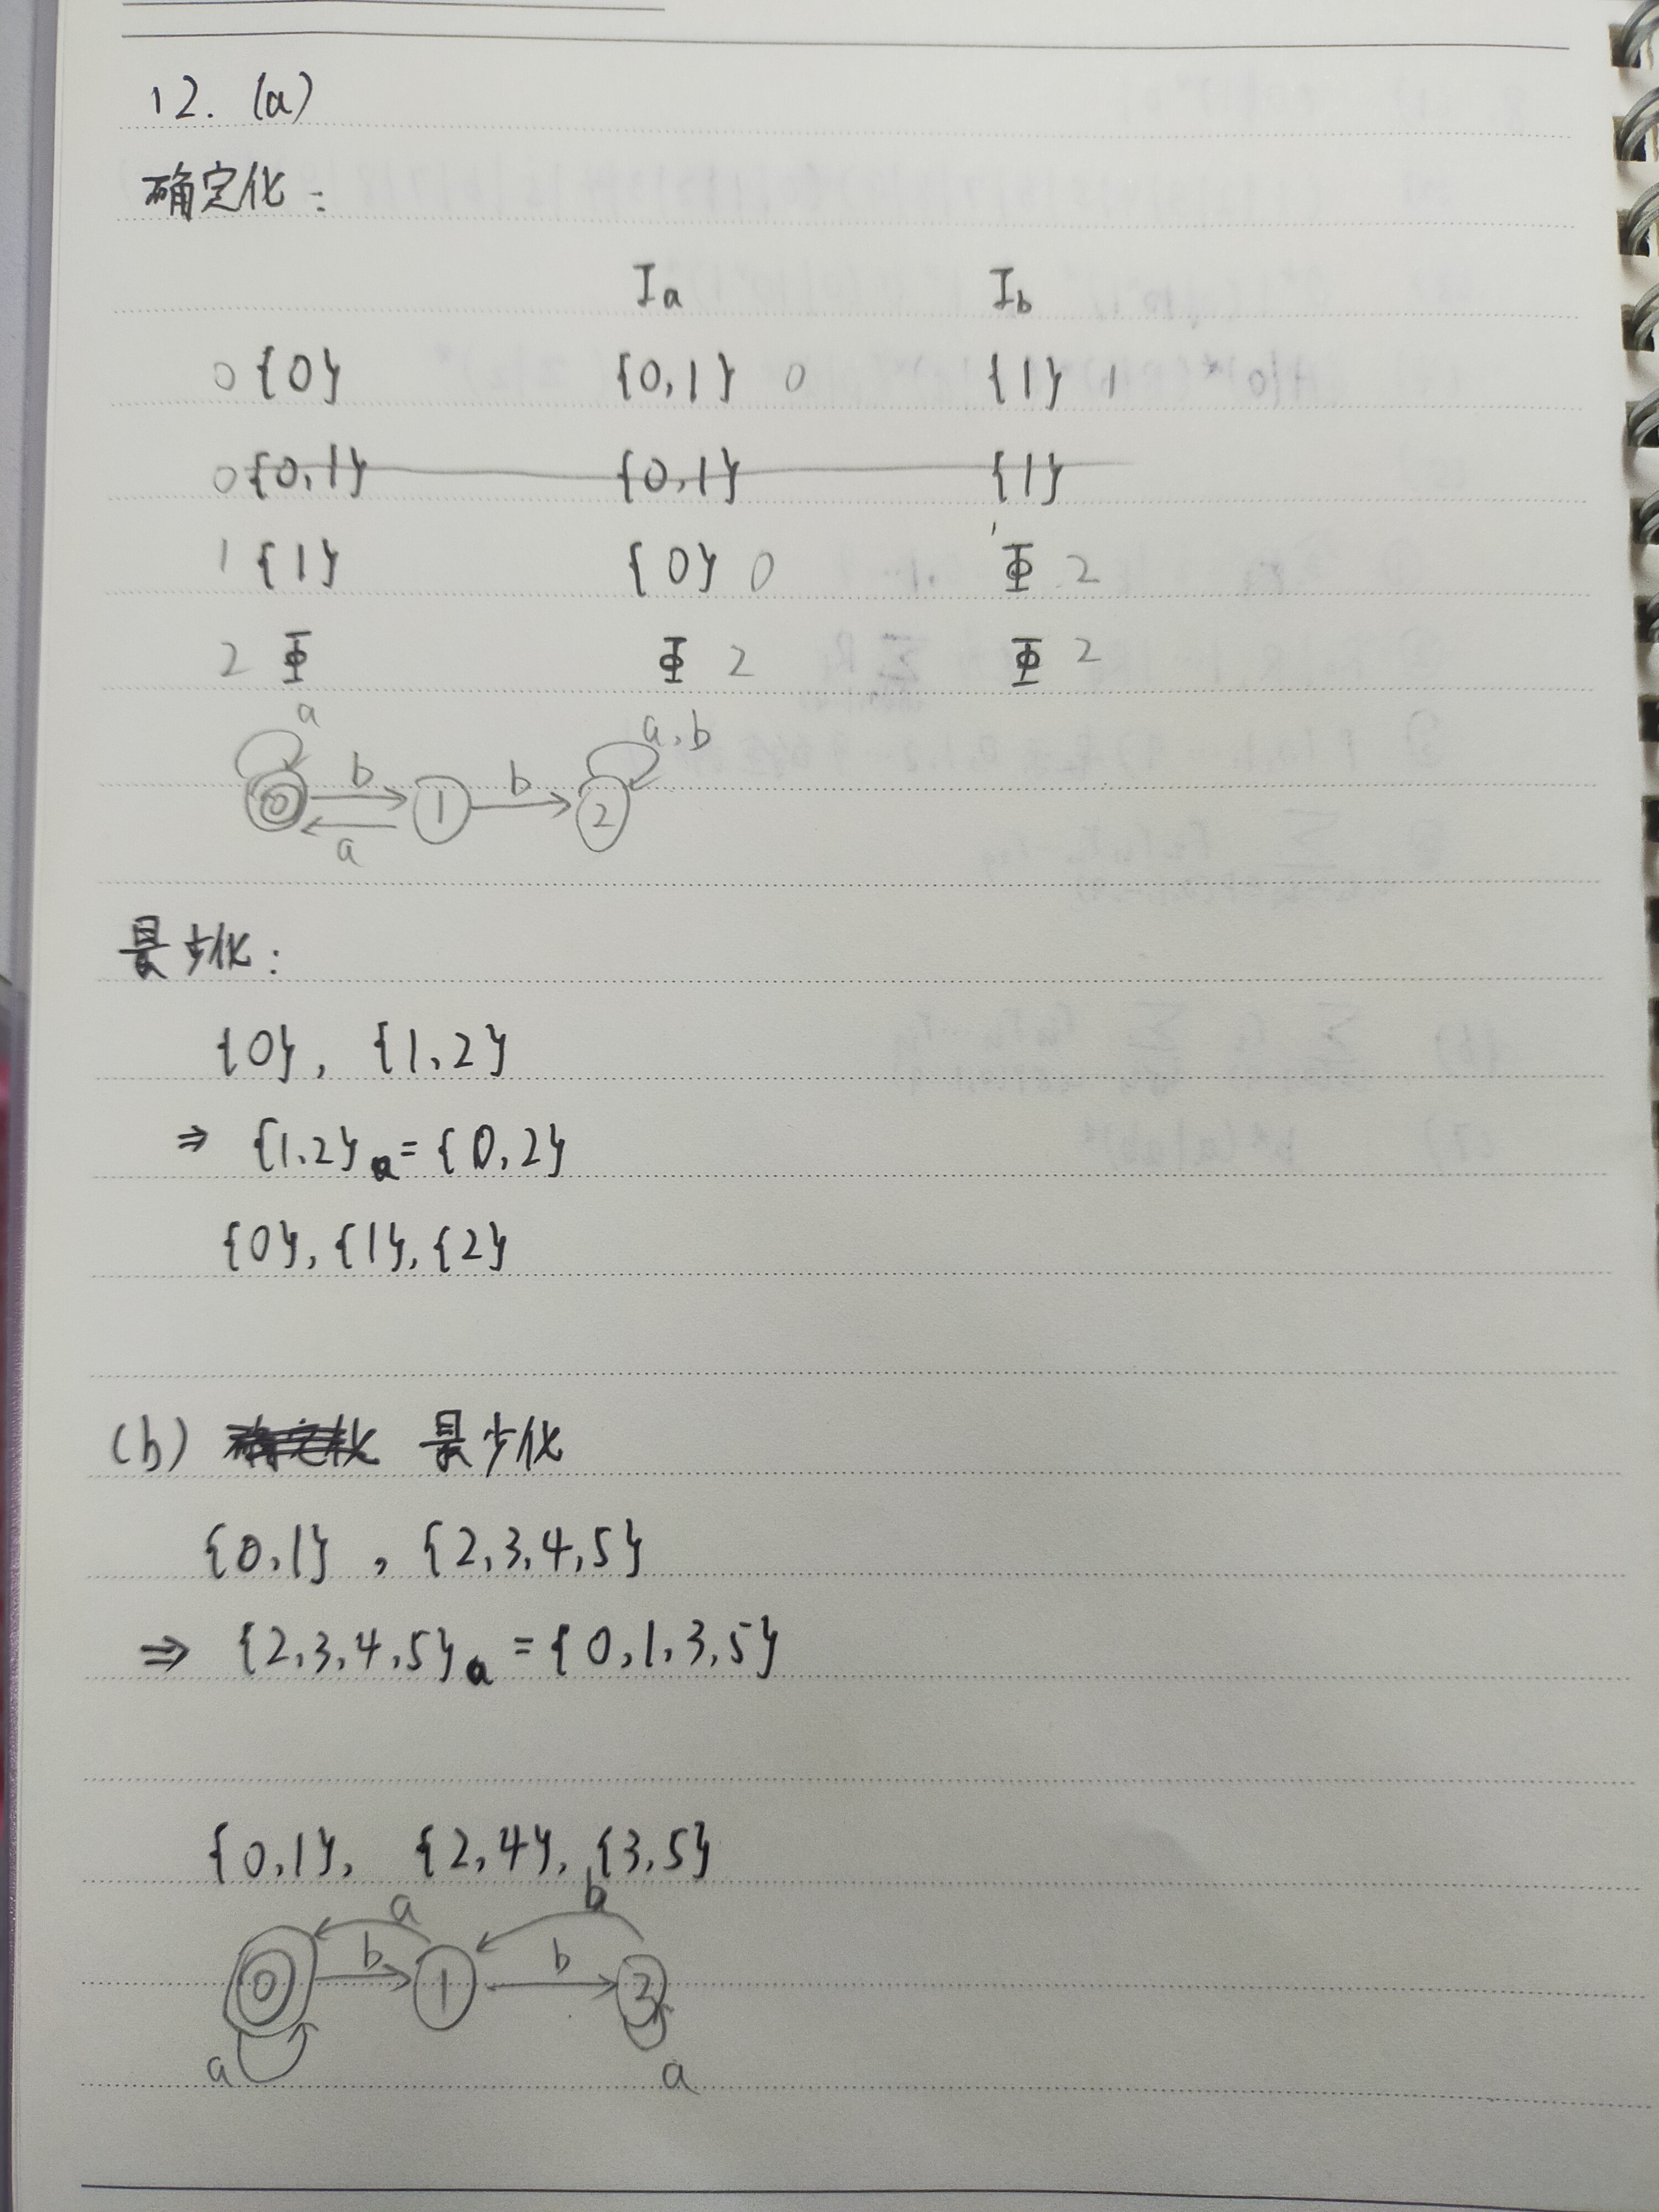 12. (a)
确定化:
Ia Ib
0 {0} {0,1} 0 {1} 1
0 {0,1} {0,1} {1}
1 {1} {0} 0 Φ 2
2 Φ Φ 2 Φ 2
a a,b
b b
0 1 2
a
最少化:
{0}, {1,2}
⇒ {1,2}a = {0,2}
{0}, {1}, {2}
(b) 最少化
{0,1}, {2,3,4,5}
⇒ {2,3,4,5}a = {0,1,3,5}
{0,1}, {2,4}, {3,5}
a b
b b
0 1 2
a a